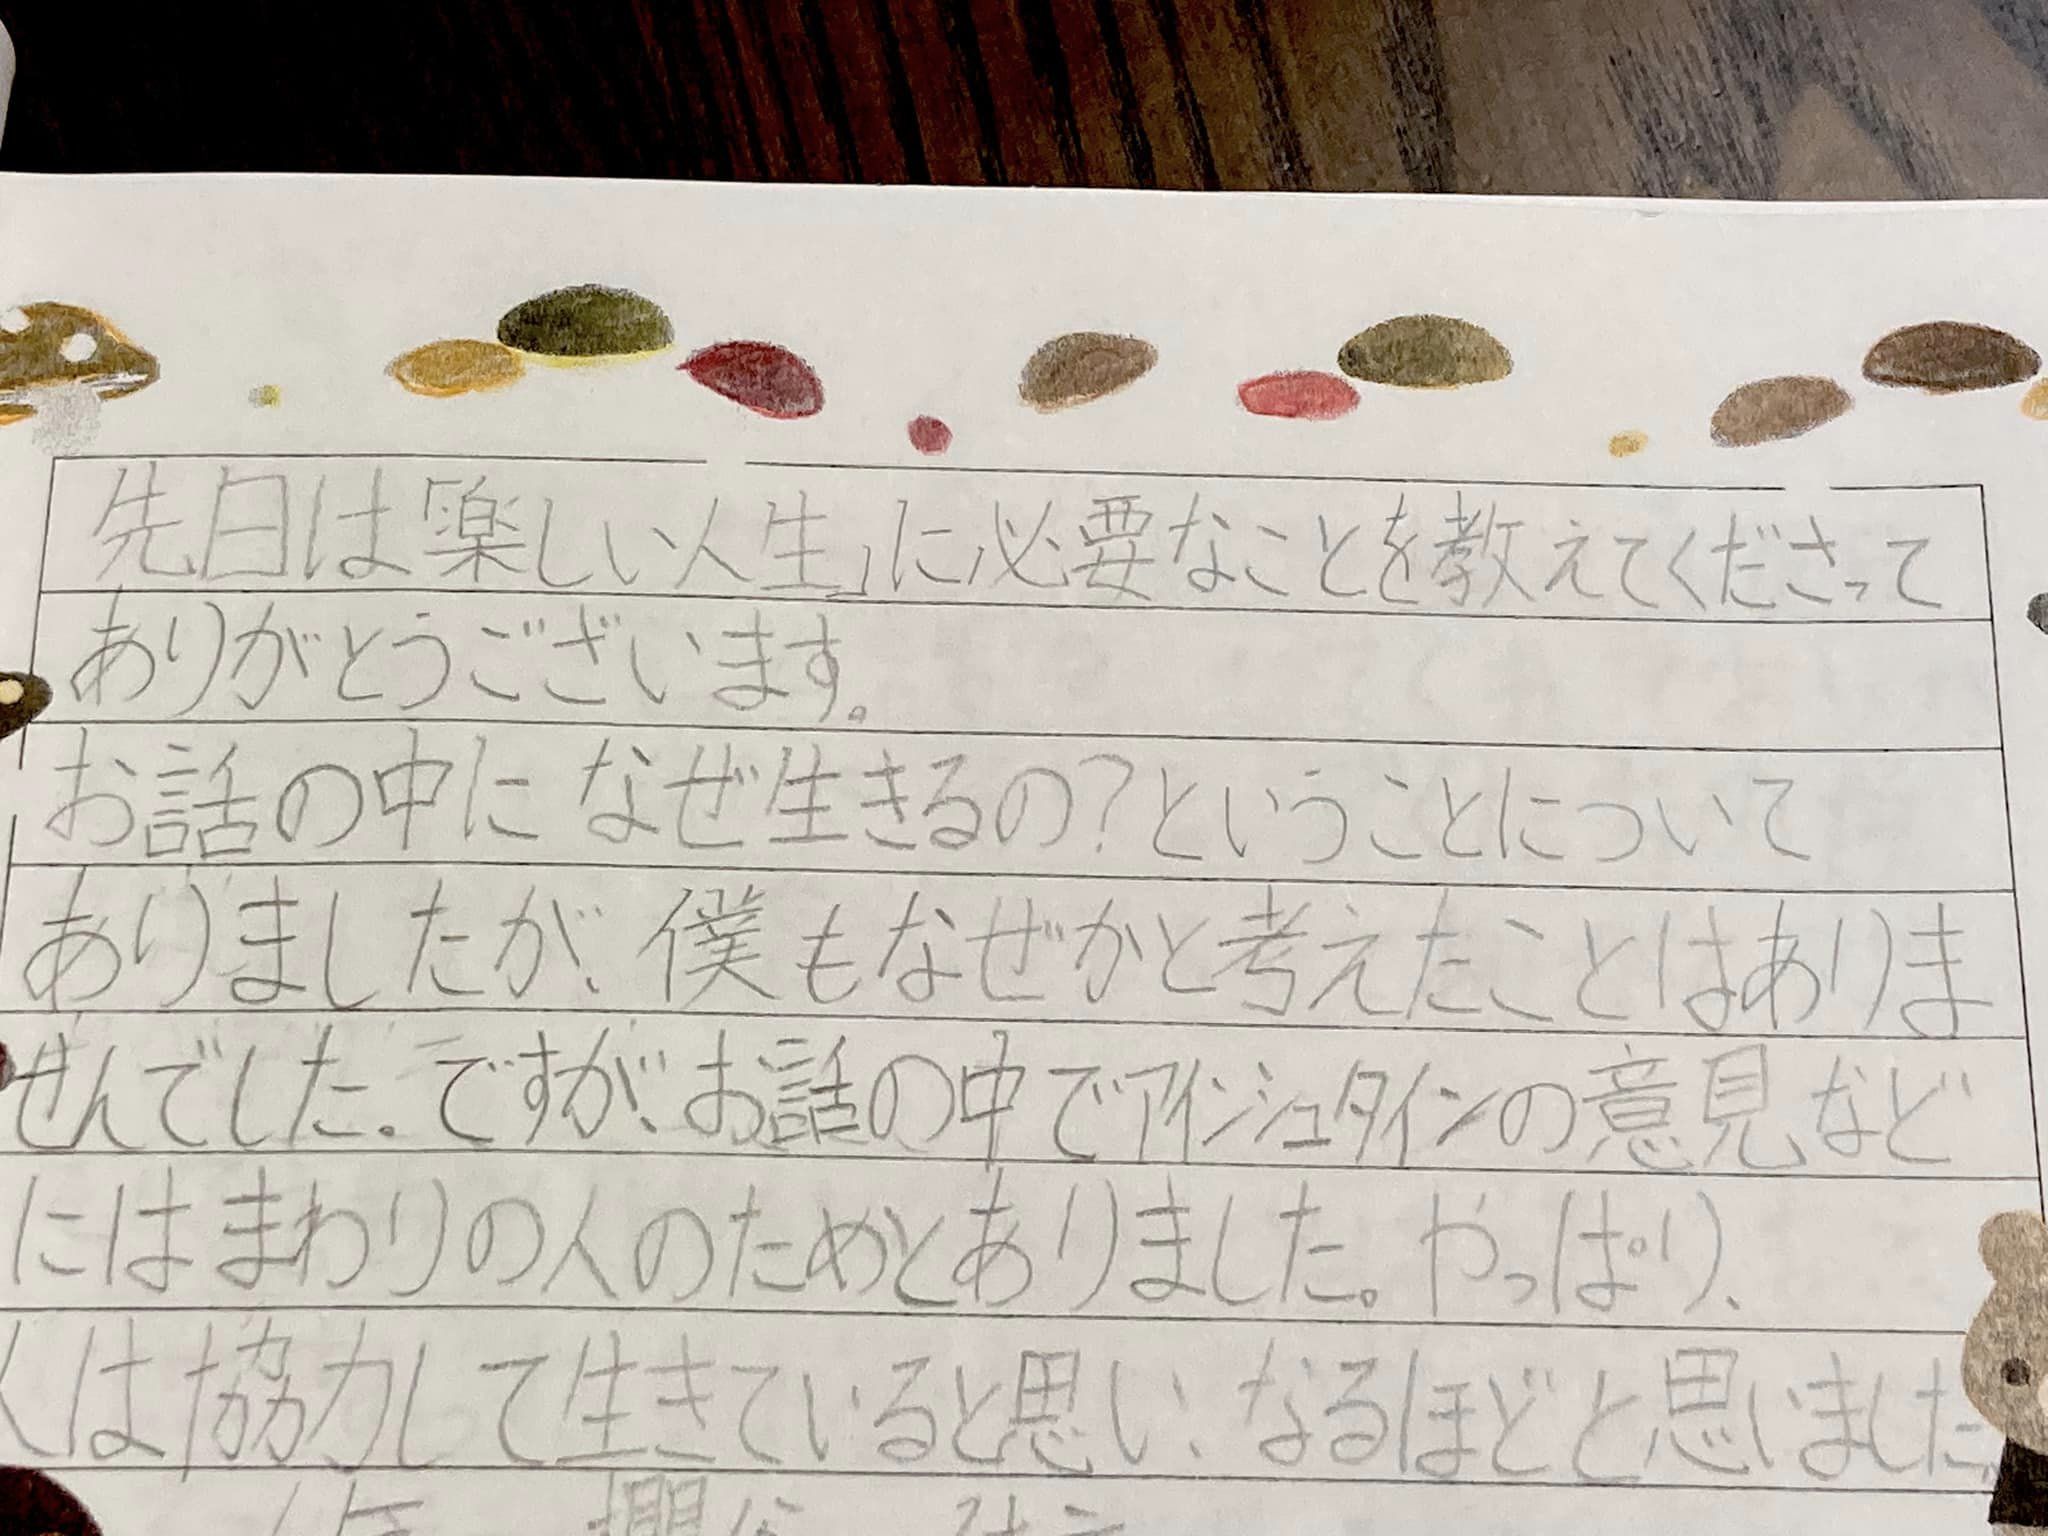 先日は「楽しい人生」に必要なことを教えてくださって
ありがとうございます。
お話の中に なぜ生きるの?ということについて
ありましたが、僕もなぜかと考えたことはありま
せんでした。ですが、お話の中でアインシュタインの意見など
にはまわりの人のためとありました。やっぱり、
人は協力して生きていると思い、なるほどと思いました。